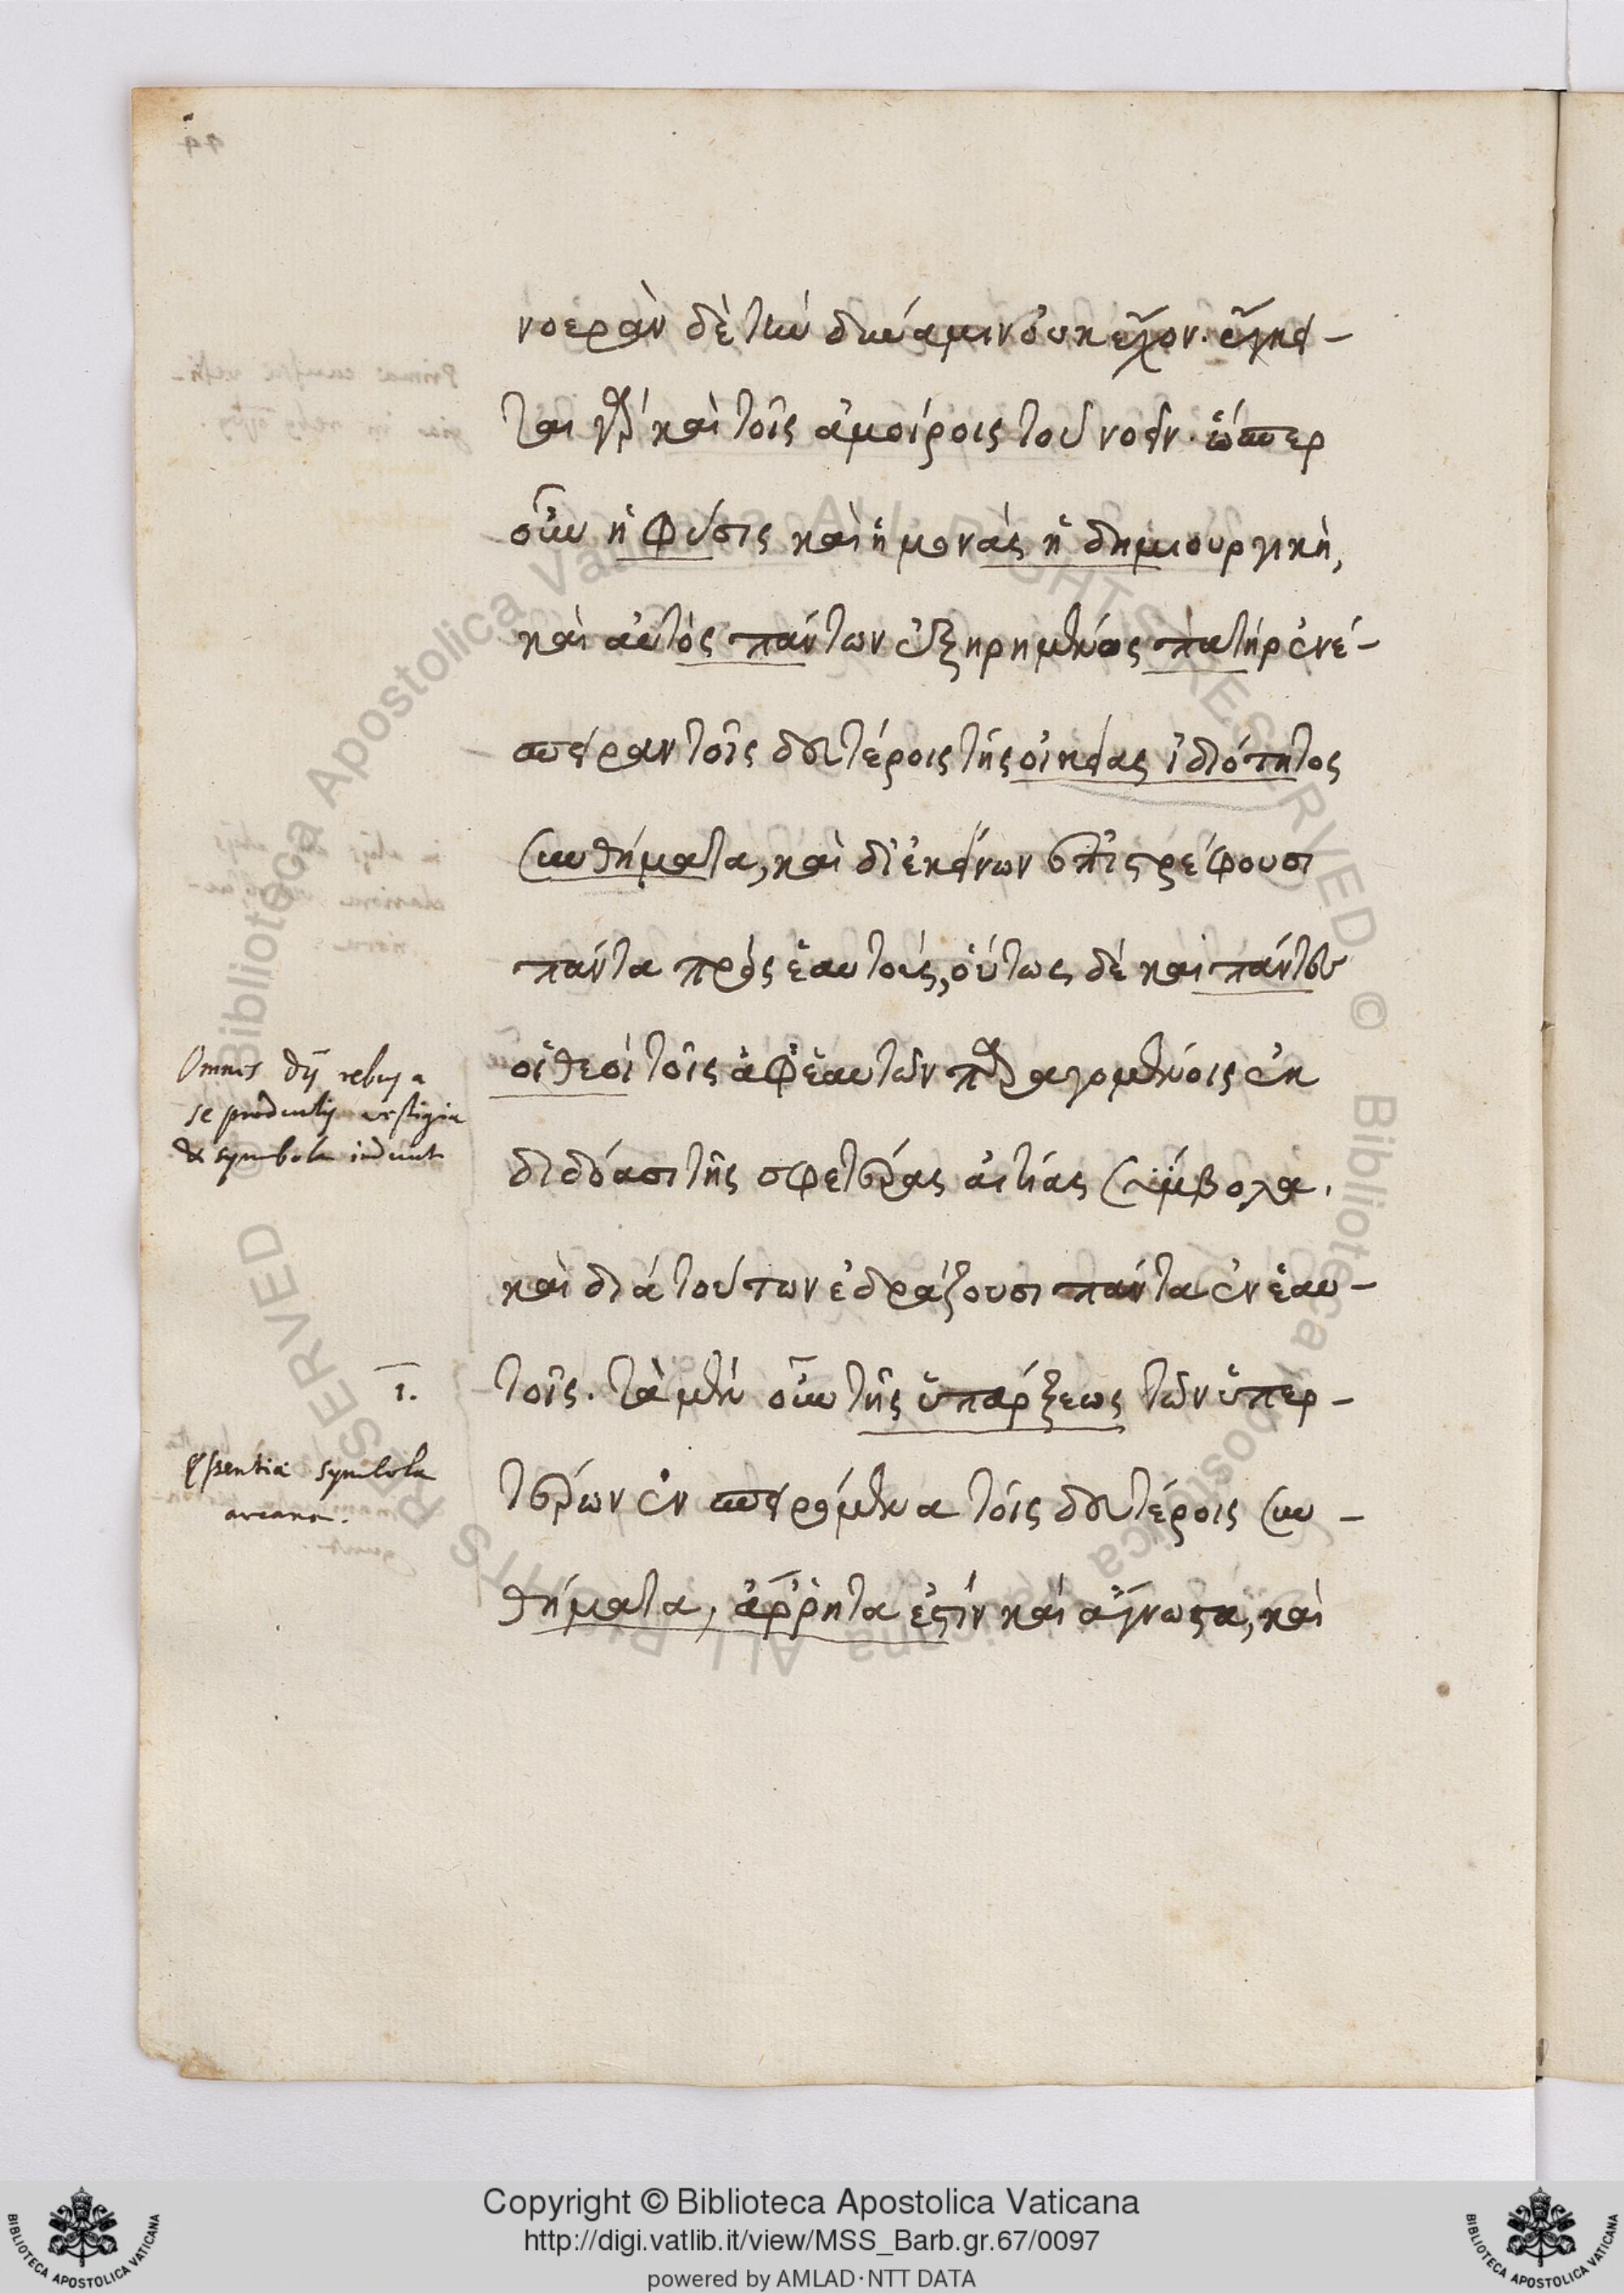 νοερὰν δὲ τὴν δύναμιν οὐκ εἶχον. ἔγκει-
ται γὰρ καὶ τοῖς ἀμοίροις τοῦ νοεῖν. ὥσπερ
οὖν ἡ φύσις καὶ ἡ μονὰς ἡ δημιουργικὴ,
καὶ αὐτὸς πάντων ἐξῃρημένος πατὴρ ἐνέ-
σπειραν τοῖς δευτέροις τῆς οἰκείας ἰδιότητος
συνθήματα, καὶ δι' ἐκείνων ἐπιστρέφουσι
πάντα πρὸς ἑαυτούς, οὕτως δὲ καὶ πάντες
οἱ θεοὶ τοῖς ἀφ' ἑαυτῶν παραγομένοις ἐκ
διδόασι τῆς σφετέρας αἰτίας σύμβολα.
καὶ διὰ τούτων ἑδράζουσι πάντα ἐν ἑαυ-
τοῖς. τὰ μὲν οὖν τῆς ὑπάρξεως τῶν ὑπερ-
τέρων ἐν σπειρόμενα τοῖς δευτέροις συν-
θήματα, ἄρρητα ἐστὶν καὶ ἄγνωστα, καὶ
Omnes dij rebus a
se productis vestigia
& symbola indunt
1.
Essentiæ symbola
arcana.
Copyright © Biblioteca Apostolica Vaticana
http://digi.vatlib.it/view/MSS_Barb.gr.67/0097
powered by AMLAD·NTT DATA